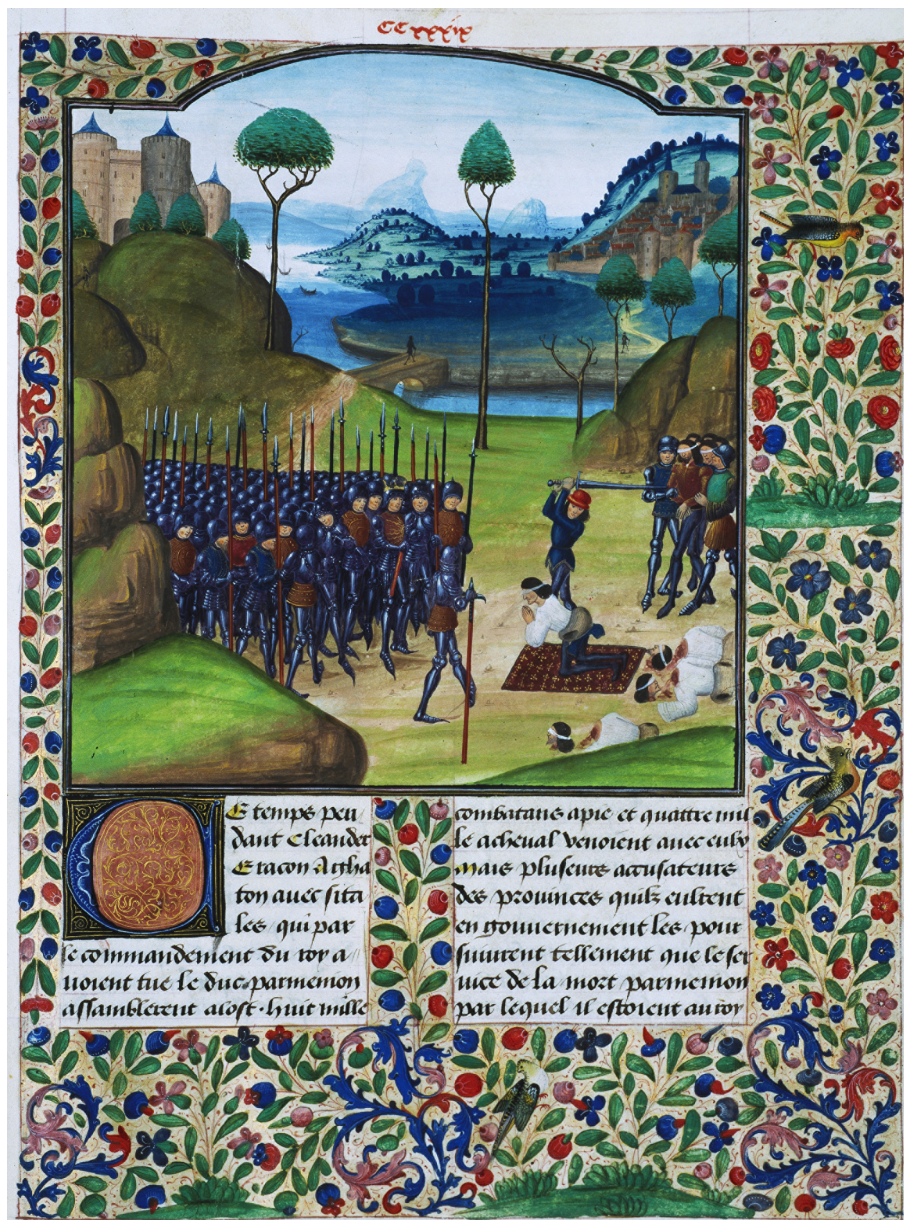 CCxxxix
CE temps pen
dant Cleander
Etacon Attha
ton auec sita
les qui par
le commandement du roy a
uoient tue le duc parmenion
assamblerent alost. huit mille
combatans apie et quattre mil
le acheval venoient auec eulx
mais pluseurs accusateurs
des prouinces quilz eulrent
en gouuernement les pour
suiuirent tellement que le ser
uice de la mort parmenion
par lequel il estoient au roy